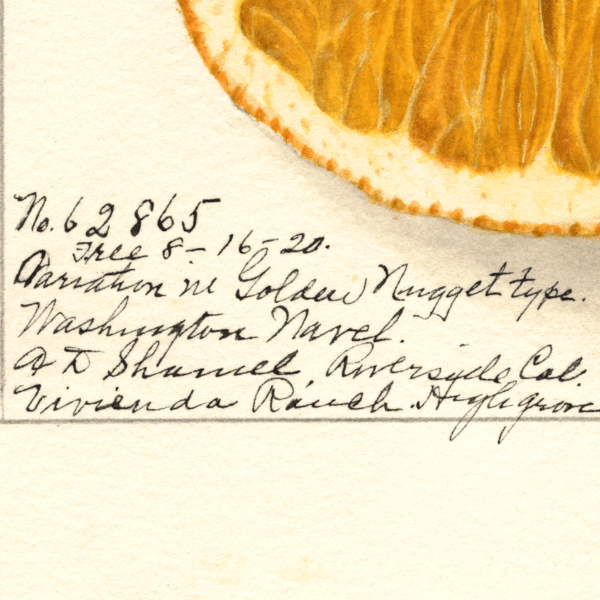 No. 62865
Tree 8-16-20.
Variation in Golden Nugget type.
Washington Navel.
A D Shamel Riverside Cal.
Vivienda Ranch. Highgrove